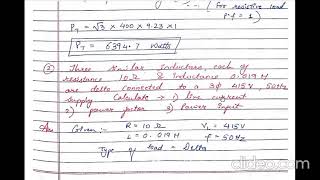 ( for resistive load
P.f = 1)
PT = √3 × 400 × 9.23 × 1
PT = 6394.7 Watts
② Three similar Inductors, each of
resistance 10Ω & Inductance 0.019 H
are delta connected to a 3ϕ 415 V, 50Hz
supply Calculate → 1) line current
2) power factor 3) Power Input
Ans Given :- R = 10 Ω VL = 415V
L = 0.019H f = 50Hz
Type of load = Delta
clideo.com